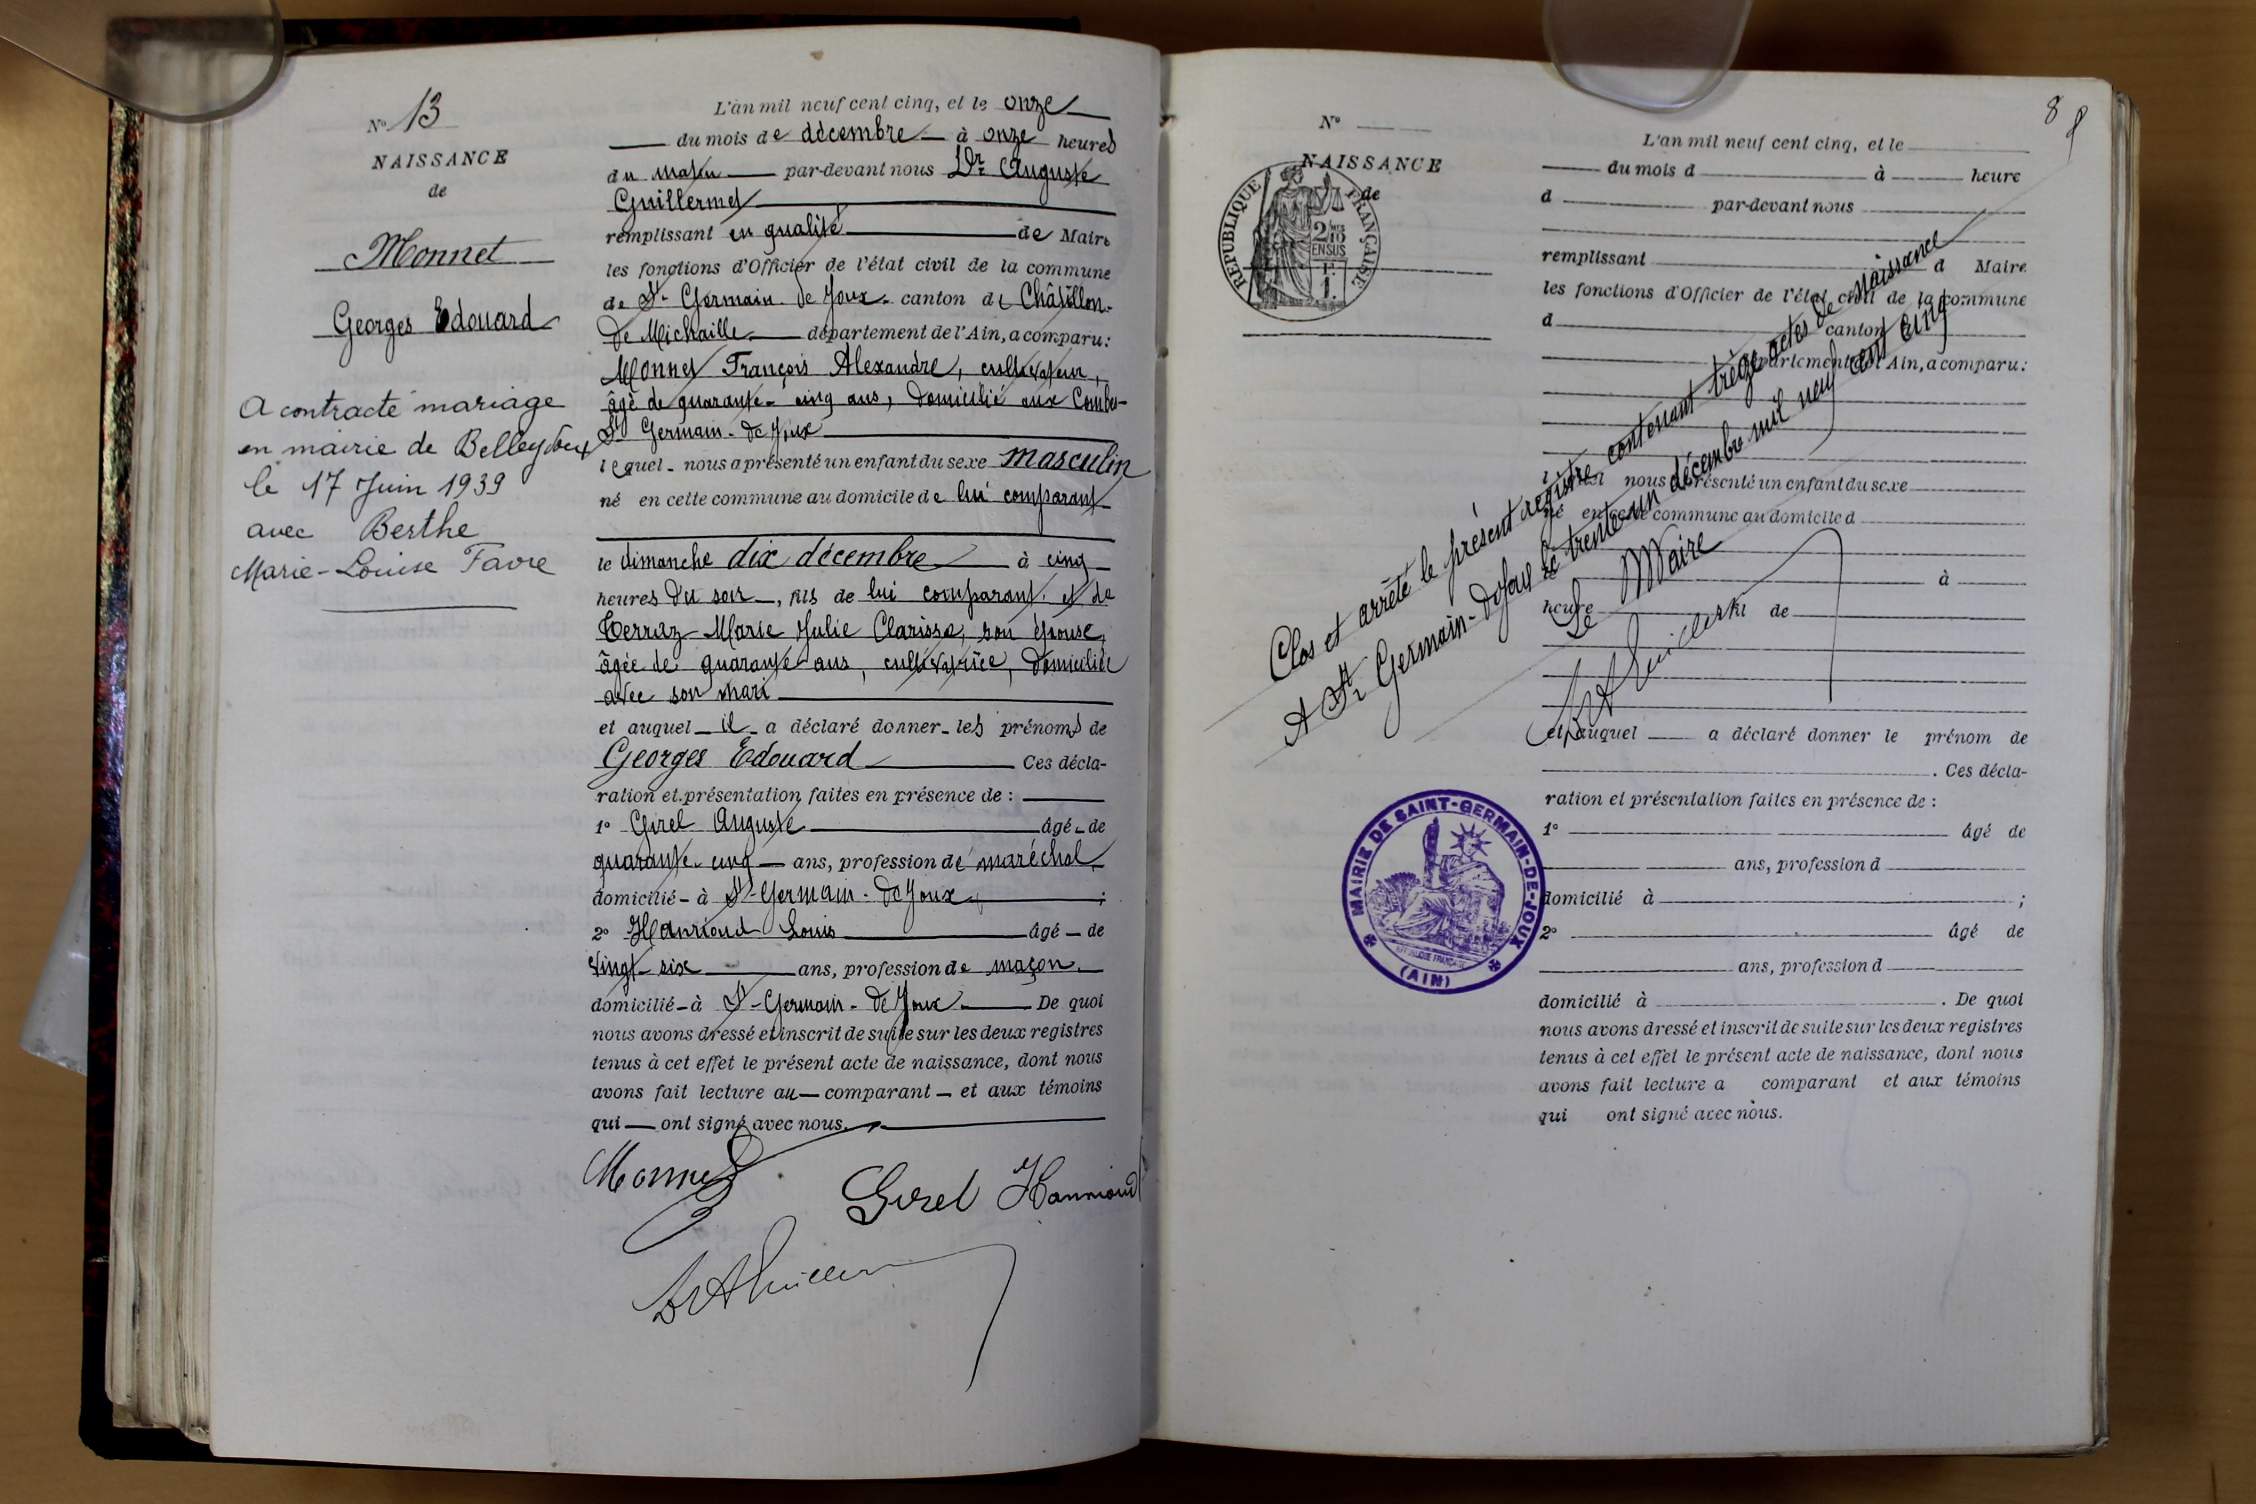 Nº 13
NAISSANCE
de
Monnet
Georges Edouard
A contracté mariage
en mairie de Belleydoux
le 17 Juin 1939
avec Berthe
Marie-Louise Favre
L'an mil neuf cent cinq, et le onze
du mois de décembre à onze heures
du matin par-devant nous Dr Auguste
Guillermet
remplissant en qualité de Maire
les fonctions d'Officier de l'état civil de la commune
de St-Germain-de Joux canton de Châtillon-
de Michaille département de l'Ain, a comparu:
Monnet François Alexandre, cultivateur,
âgé de quarante-cinq ans, domicilié aux Combes-
St Germain-de Joux
lequel nous a présenté un enfant du sexe masculin
né en cette commune au domicile de lui comparant
le dimanche dix décembre à cinq
heures du soir, fils de lui comparant et de
Terraz Marie Julie Clarisse, son épouse,
âgée de quarante ans, cultivatrice, domiciliée
avec son mari
et auquel il a déclaré donner les prénoms de
Georges Edouard Ces décla-
ration et présentation faites en présence de :
1º Girel Auguste âgé de
quarante-cinq ans, profession de maréchal
domicilié à St-Germain-de Joux ;
2º Hanrioud Louis âgé de
vingt-six ans, profession de maçon
domicilié à St-Germain-de Joux De quoi
nous avons dressé et inscrit de suite sur les deux registres
tenus à cet effet le présent acte de naissance, dont nous
avons fait lecture au comparant et aux témoins
qui ont signé avec nous.
Monnet
Girel Hanrioud
Dr A Guillermet
8
Nº
NAISSANCE
de
RÉPUBLIQUE FRANÇAISE
2/10
EN SUS
L'an mil neuf cent cinq, et le
du mois d à heure
d par-devant nous
remplissant d Maire
les fonctions d'Officier de l'état civil de la commune
d canton
département de l'Ain, a comparu:
l quel nous a présenté un enfant du sexe
né en cette commune au domicile d
le à
heure fil de
et auquel a déclaré donner le prénom de
. Ces décla-
ration et présentation faites en présence de :
1º âgé de
ans, profession d
domicilié à ;
2º âgé de
ans, profession d
domicilié à . De quoi
nous avons dressé et inscrit de suite sur les deux registres
tenus à cet effet le présent acte de naissance, dont nous
avons fait lecture a comparant et aux témoins
qui ont signé avec nous.
Clos et arrêté le présent registre contenant treize actes de naissance
A St Germain-de Joux le trente un décembre mil neuf cent cinq
Le Maire
Dr A Guillermet
MAIRIE DE SAINT-GERMAIN-DE-JOUX
RÉPUBLIQUE FRANÇAISE
(AIN)